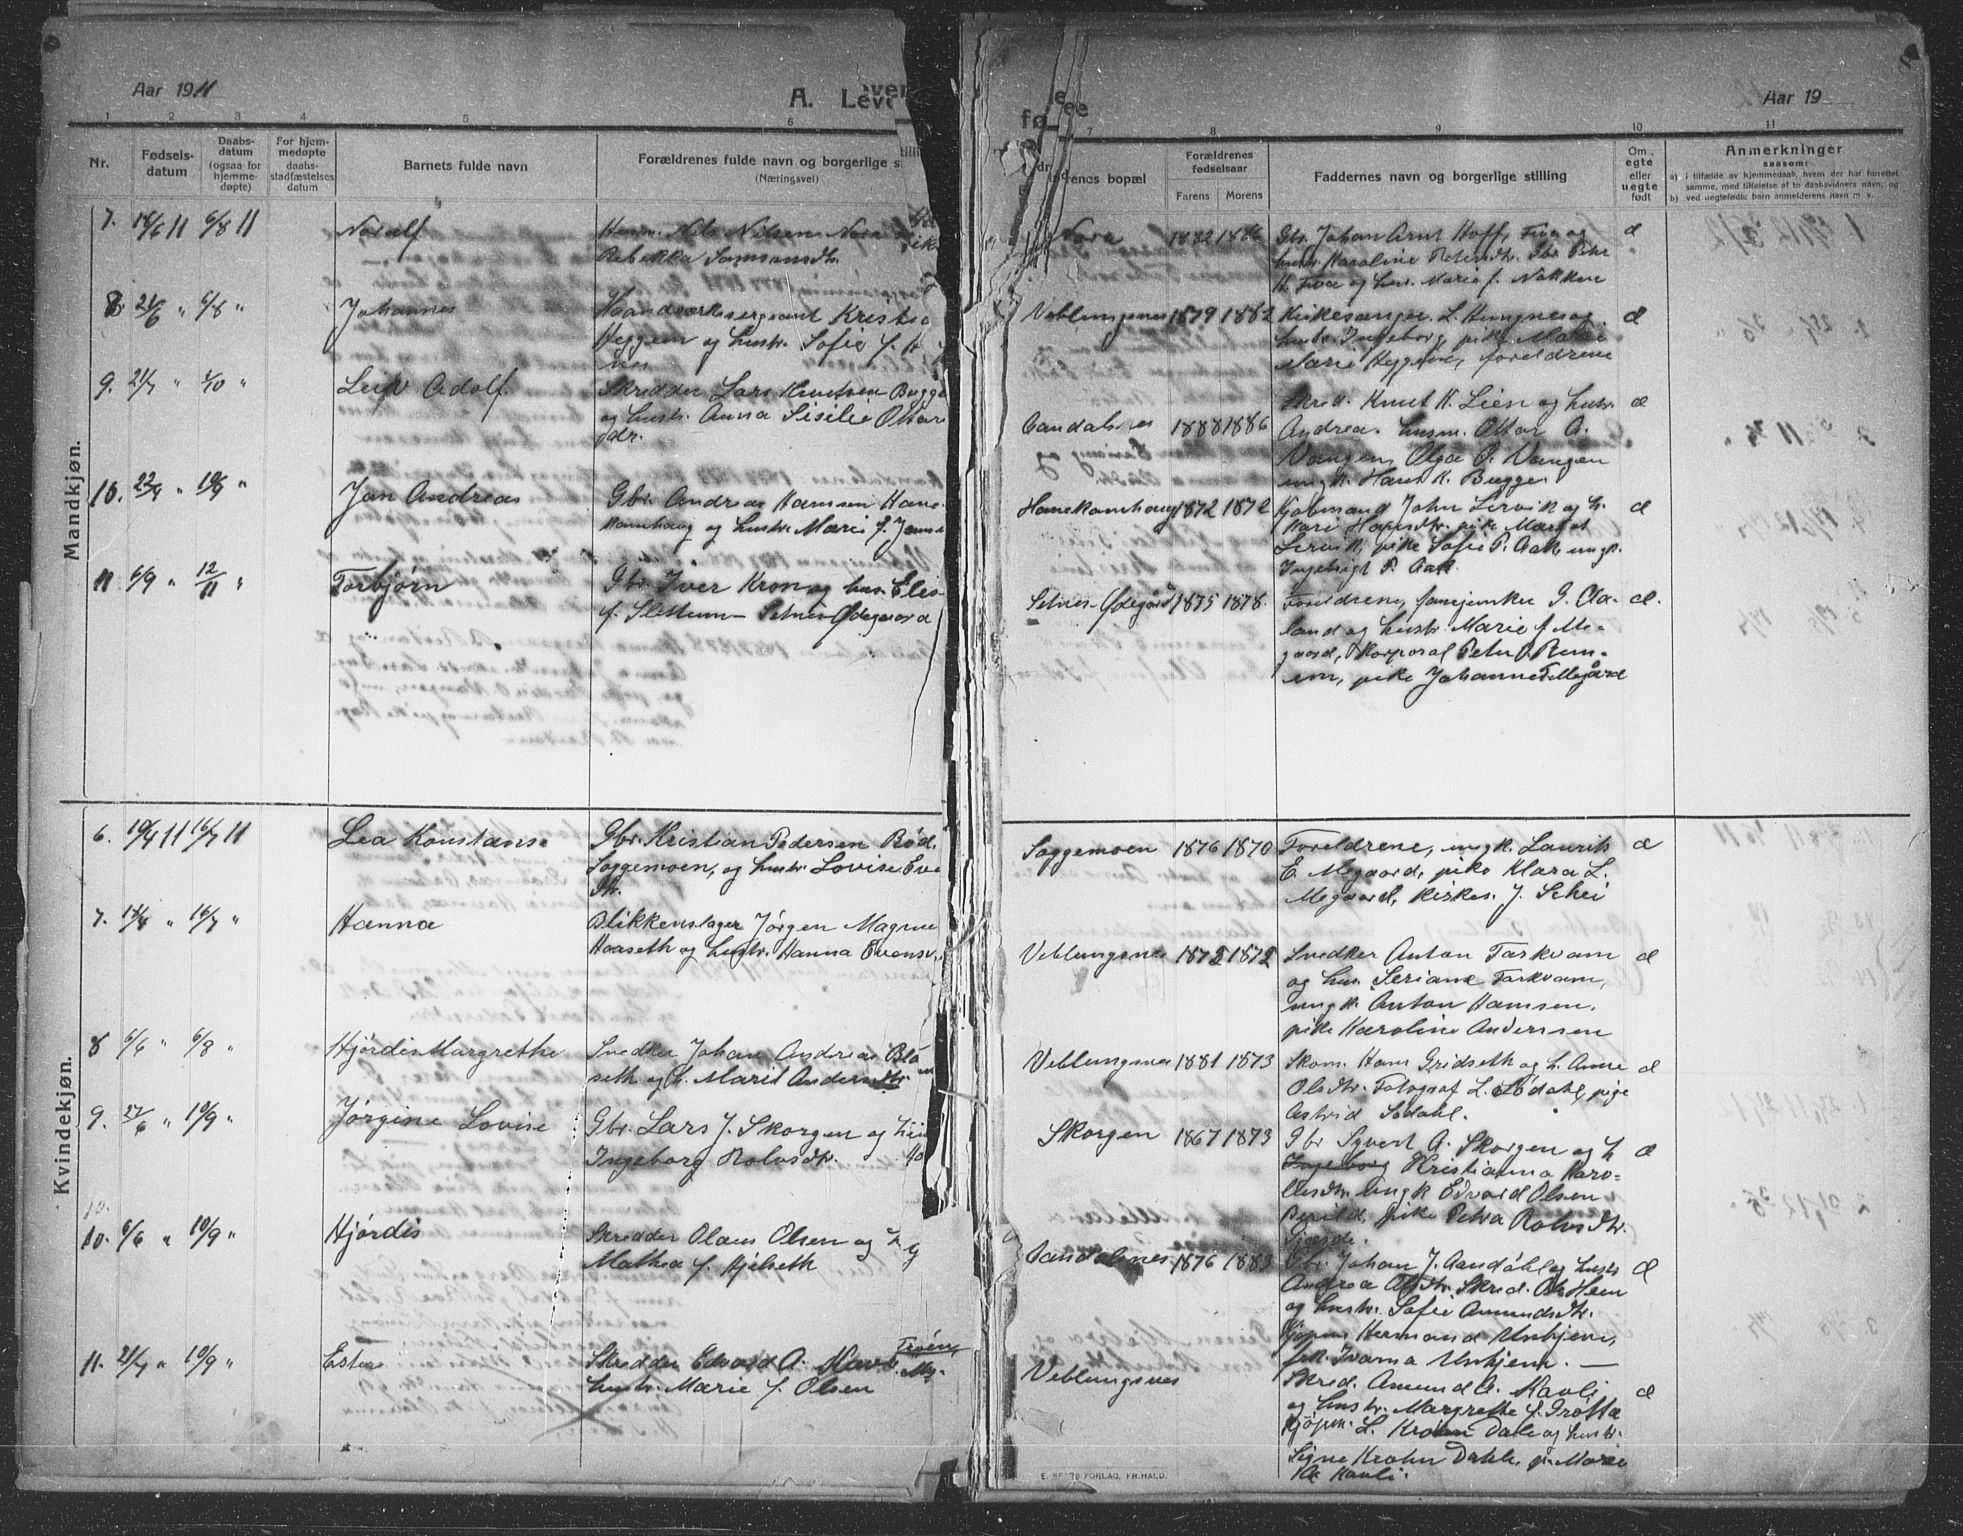 Aar 1911
A. Levende
fødte
Aar 19
1 2 3 4 5 6 7 8 9 10 11
Nr.
Fødsels-
datum
Daabs-
datum
(ogsaa for
hjemme-
døpte)
For hjem-
medøpte
daabs-
stadfæstelses
datum
Barnets fulde navn
Forældrenes fulde navn og borgerlige
(Næringsvei)
Forældrenes
fødselsaar
Farens Morens
Faddernes navn og borgerlige stilling
Om
egte
eller
uegte
født
Anmerkninger
saasom:
a) i tilfælde av hjemmedaab, hvem der har forrettet
samme, med tilføielse af to daabsvidners navn, og
b) ved uegtefødte barn anmelderens navn m. v.
Mandkjøn.
7. 14/6 11 6/8 11 Nordlf Nils Nilsen Nora
Rebekka Samsonsdtr.
Nora 1882 1886 Gbr. Johan Arnt Hoff, Fiva og
hustr. Karoline Petersdtr. Gbr. Peter
H. Fiva og hus. Marie f. Nakken
d
8 21/6 " 6/8 " Johannes Haandverkssergeant Kristia
Heggem og hustr. Sofie f. H
Veblungsnes 1879 1882 Kirkesanger L. Hungnes og
hustr. Ingeborg, pike Mathe
Marie Heggem, foreldrene
d
9. 21/7 " 1/10 " Leif Adolf. Skredder Lars Knutsen Bugge
og hustr. Anna Sisilie Ottar
dtr.
Aandalsnes 1888 1886 Skred. Knut K. Lien og hustr.
Andrea. husm. Ottar A.
Vangen, Olga O. Vangen
ungk. Hans K. Bugge.
d
10. 22/7 " 10/9 " Jon Andreas Gbr. Andreas Hansen Hane-
kamhaug og hustr. Marie f. Jens
Hanekamhaug 1872 1872 Kjøbmand John Lervik og h.
Kari Hansdtr. pike Margot
Lervik, pike Sofie P. Aak, ungk.
Ingebrigt P. Aak.
d
11 6/9 " 12/11 " Torbjørn Gbr. Iver Kron og hus. Elis
f. Slettum - Setnes Ødegaard
Setnes-Ødegård 1875 1878. Foreldrene, fanejunker G. Aa-
land og hustr. Marie f. Me-
gaard, Korporal Peter O. Rem-
em, pike Johanne Tillegård
d.
Kvindekjøn.
6. 10/4 11 16/7 11 Lea Konstanse Gbr. Kristian Pedersen Rød.
Soggemoen, og hustr. Lovise Eve
dtr.
Soggemoen 1876 1870 Foreldrene, ungk. Laurits
E. Megaard, pike Klara L.
Megaard, kirkes. J. Schei
d
7. 14/4 " 16/7 " Hanna Blikkenslager Jørgen Magnu
Haaseth og hustr. Hanna Evensd.
Veblungsnes 1872 1872 Snedker Anton Torkvam
og hus. Seriane Torkvam,
ungk. Anton Hansen.
pike Karoline Anderssen
d
8 6/6 " 6/8 " Hjørdis Margrethe Snedker Johan Andreas Blå
seth og h. Marit Andersdtr.
Veblungsnes 1881 1873 Skom. Hans Gridseth og h. Anne
Olsdtr. Fotograf L. Sødahl, pige
Astrid Sødahl.
d
9. 27/6 " 10/9 " Jørgine Lovise Gbr. Lars J. Skorgen og
Ingeborg Rolvsdtr.
Skorgen 1867 1873 Gbr Syvert A. Skorgen og h
Ingeborg Kristianna Karo-
liusdtr. ungk Edvard Olsen
pike Petra Rolvsdtr.
d
10. 6/6 " 10/9 " Hjørdis Skredder Olaus Olsen og h
Mathea f. Hjelseth
Aandalsnes 1876 1883 Gbr. Johan J. Aandahl og hustr.
Andrea Olsdtr. Skred. O. Heen
og hustr. Sofie Amundsdtr.
Kjøpm Hermand Unhjem,
frk. Ivarna Unhjem. —
d
11. 21/7 " 10/9 " Ester Skredder Edvard A. Kavli
hustr. Marie f. Olsen
Veblungsnes
Skred. Amund A. Kavli
og hustr. Margrethe f. Grøtta
Kjøpm. L. Krohn Dahle og hustr.
Signe Krohn Dahle, p. Marie
Kavli.
d
E. SEM'S FORLAG, FR.HALD.